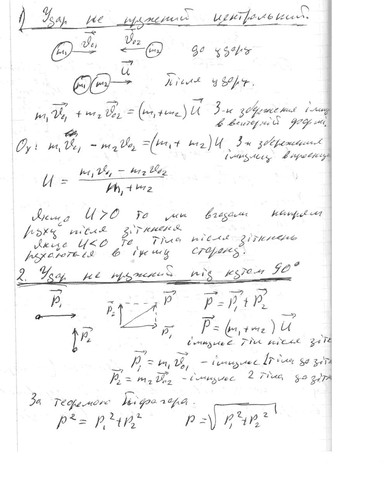 1) Удар не пружений центральний.
v⃗01 v⃗02
m1 m2 до удару
U⃗
m1 m2 Після удару.
m1v⃗01 + m2v⃗02 = (m1+m2) U⃗ З-н збереження імп
в векторній формі.
m1v01 - m2v02 = (m1+m2) U З-н збереження
імпульсу в проекц
U = m1v01 - m2v02 / m1+m2
Якщо U>0 то ми вгадали напрям
руху після зіткнення
Якщо U<0 то тіла після зіткнень
рухаються в іншу сторону.
2. Удар не пружений під кутом 90°
P⃗1 P⃗2 P⃗ P⃗ = P⃗1 + P⃗2
P⃗2 P⃗1 P⃗ = (m1+m2) U⃗
імпульс тіл після зітк
P⃗1 = m1v⃗01 - імпульс 1 тіла до зітк
P⃗2 = m2v⃗02 - імпульс 2 тіла до зітк
За теоремою Піфагора.
P² = P1² + P2² P = √P1² + P2²